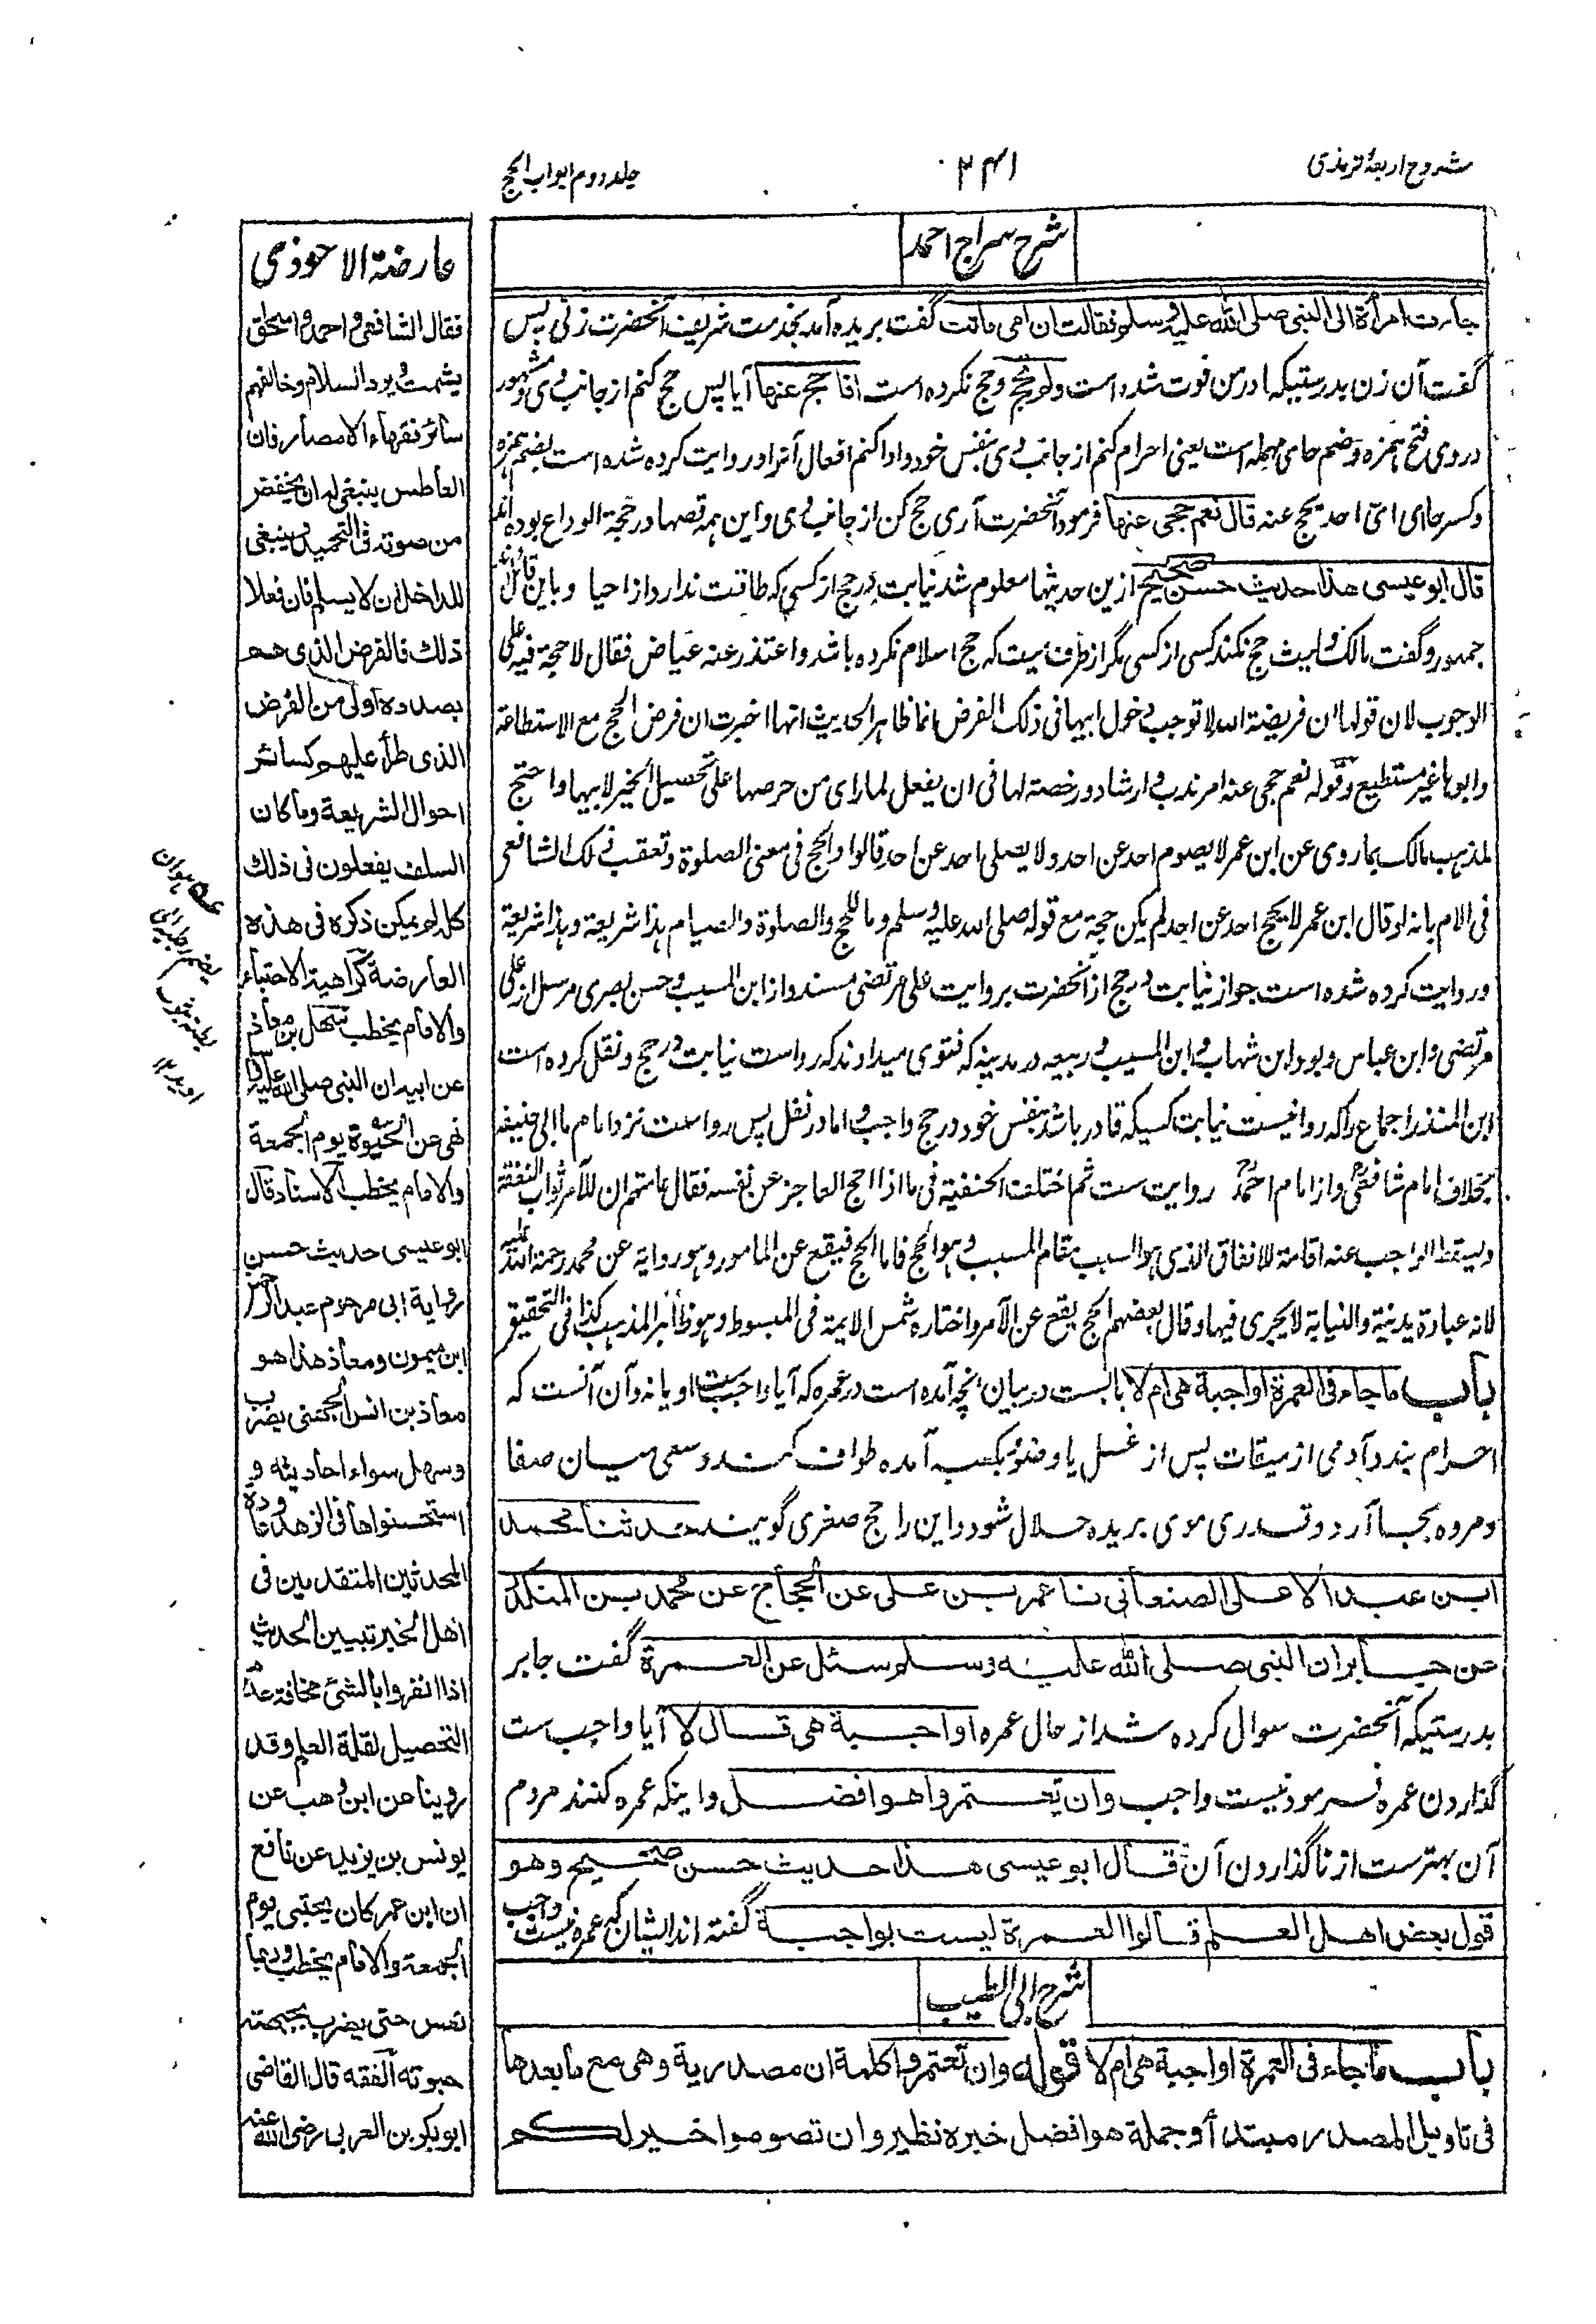 شروح اربعهٔ ترمذی
۲۴۱
جلد دوم ابواب الحج
شرح سراج احمد
جاءت امرأة الی النبی صلی الله علیه وسلم فقالت ان امی ماتت گفت بریده آمد بخدمت شریف آنحضرت زنی پس
گفت آن زن بدرستیکه مادر من فوت شده است ولم تحج وحج نکرده است افاحج عنها آیا پس حج کنم از جانب وی ومشهور
در وی فتح همزه وضم حای مهمله است یعنی احرام کنم از جانب وی بنفس خود وادا کنم افعال آنرا وروایت کرده شده است بضم همزه
وکسر حا ای انی احد یحج عنه قال نعم حجی عنها فرمود آنحضرت آری حج کن از جانب وی واین همه قصها در حجة الوداع بوده اند
قال ابو عیسی هذا حدیث حسن صحیح ازین حدیثها معلوم شد نیابت در حج از کسی که طاقت ندارد از احیا وباین قائل اند
جمهور وگفت مالک ولیث حج نکند کسی از کسی مگر از طرف میت که حج اسلام نکرده باشد واعتذر عنه عیاض فقال لا حجة فیه علی
الوجوب لان قولها ان فریضة الله لا توجب دخول ابیها فی ذلک الفرض انما ظاهر الحدیث انها اخبرت ان فرض الحج مع الاستطاعة
وابوها غیر مستطیع وقوله نعم حجی عنه امر ندب وارشاد ورخصة لها فی ان یفعل لما رای من حرصها علی تحصیل الخیر لابیها واحتج
لمذهب مالک بما روی عن ابن عمر لا یصوم احد عن احد ولا یصلی احد عن احد قالوا والحج فی معنی الصلوة وتعقب ذلک الشافعی
فی الام بانه لو قال ابن عمر لا یحج احد عن احد لم یکن حجة مع قوله صلی الله علیه وسلم وما للحج والصلوة والصیام هذا شریعة وهذا شریعة
وروایت کرده شده است جواز نیابت در حج از آنحضرت بروایت علی مرتضی مسند واز ابن المسیب وحسن بصری مرسل از علی
مرتضی وابن عباس وبود ابن شهاب وابن المسیب وربیعه در مدینه که فتوی میدادند که رواست نیابت در حج ونقل کرده است
ابن المنذر اجماع را که روا نیست نیابت کسیکه قادر باشد بنفس خود در حج واجب واما در نفل پس رواست نزد امام ما ابی حنیفه
بخلاف امام شافعی واز امام احمد روایت ست ثم اختلفت الحنفیة فی ما اذا احج العاجز عن نفسه فقال عامتهم ان للآمر ثواب النفقة
ویسقط الواجب عنه اقامة للانفاق الذی هو السبب مقام المسبب وهو الحج فاما الحج فیقع عن المامور وهو روایة عن محمد رحمة الله علیه
لانه عبادة بدنیة والنیابة لا یجری فیها وقال بعضهم الحج یقع عن الآمر واختاره شمس الایمة فی المبسوط وهو ظاهر المذهب کذا فی التحقیق
باب ما جاء فی العمرة اواجبة هی ام لا بابست در بیان انچه آمده است در عمره که آیا واجب ست او یا نه وآن آنست که
احرام بندد آدمی از میقات پس از غسل یا وضو بکعبه آمده طواف کند وسعی میان صفا
ومروه بجا آرد وقدری موی بریده حلال شود واین را حج صغری گویند حدثنا محمد
ابن عبد الاعلی الصنعانی نا عمر بن علی عن الحجاج عن محمد بن المنکدر
عن جابر ان النبی صلی الله علیه وسلم سئل عن العمرة گفت جابر
بدرستیکه آنحضرت سوال کرده شد از حال عمره اواجبة هی قال لا آیا واجب ست
گذاردن عمره فرمود نیست واجب وان تعتمروا هو افضل واینکه عمره کنند مردم
آن بهترست از نا گذاردن آن قال ابو عیسی هذا حدیث حسن صحیح وهو
قول بعض اهل العلم قالوا العمرة لیست بواجبة گفته اند ایشان که عمره نیست واجب
شرح ابی الطیب
باب ما جاء فی العمرة اواجبة هی ام لا قوله وان تعتمروا کلمة ان مصدریة وهی مع ما بعدها
فی تاویل المصدر مبتدأ وجملة هو افضل خبره نظیر وان تصوموا خیر لکم
عارضة الاحوذی
فقال الشافعی واحمد واسحق
یشمت ویرد السلام وخالفهم
سائر فقهاء الامصار فان
العاطس ینبغی له ان یخفض
من صوته فی التحمید وینبغی
للداخل ان لا یسلم فان فعلا
ذلک فالفرض الذی هم
بصدده اولی من الفرض
الذی طرأ علیهم کسائر
احوال الشریعة وما کان
السلف یفعلون فی ذلک
کله لم یمکن ذکره فی هذه
العارضة کراهیة الاحتباء
والامام یخطب سهل بن معاذ
عن ابیه ان النبی صلی الله علیه
نهی عن الحبوة یوم الجمعة
والامام یخطب الاسناد قال
ابو عیسی حدیث حسن
روایة ابی مرحوم عبد الرحیم
ابن میمون ومعاذ هذا هو
معاذ بن انس الجهنی یضرب
وسهل سواء احادیثه و
استحسنوها فی الزهد
المحدثین المتقدمین فی
اهل الخیر تبیین الحدیث
اذا انفردوا بالشئ مخافة عدم
التحصیل لقلة العلم وقد
روینا عن ابن وهب عن
یونس بن یزید عن نافع
ان ابن عمر کان یحتبی یوم
الجمعة والامام یخطب وربما
نعس حتی یضرب بجبهته
حبوته الفقه قال القاضی
ابو بکر بن العربی رضی الله عنه